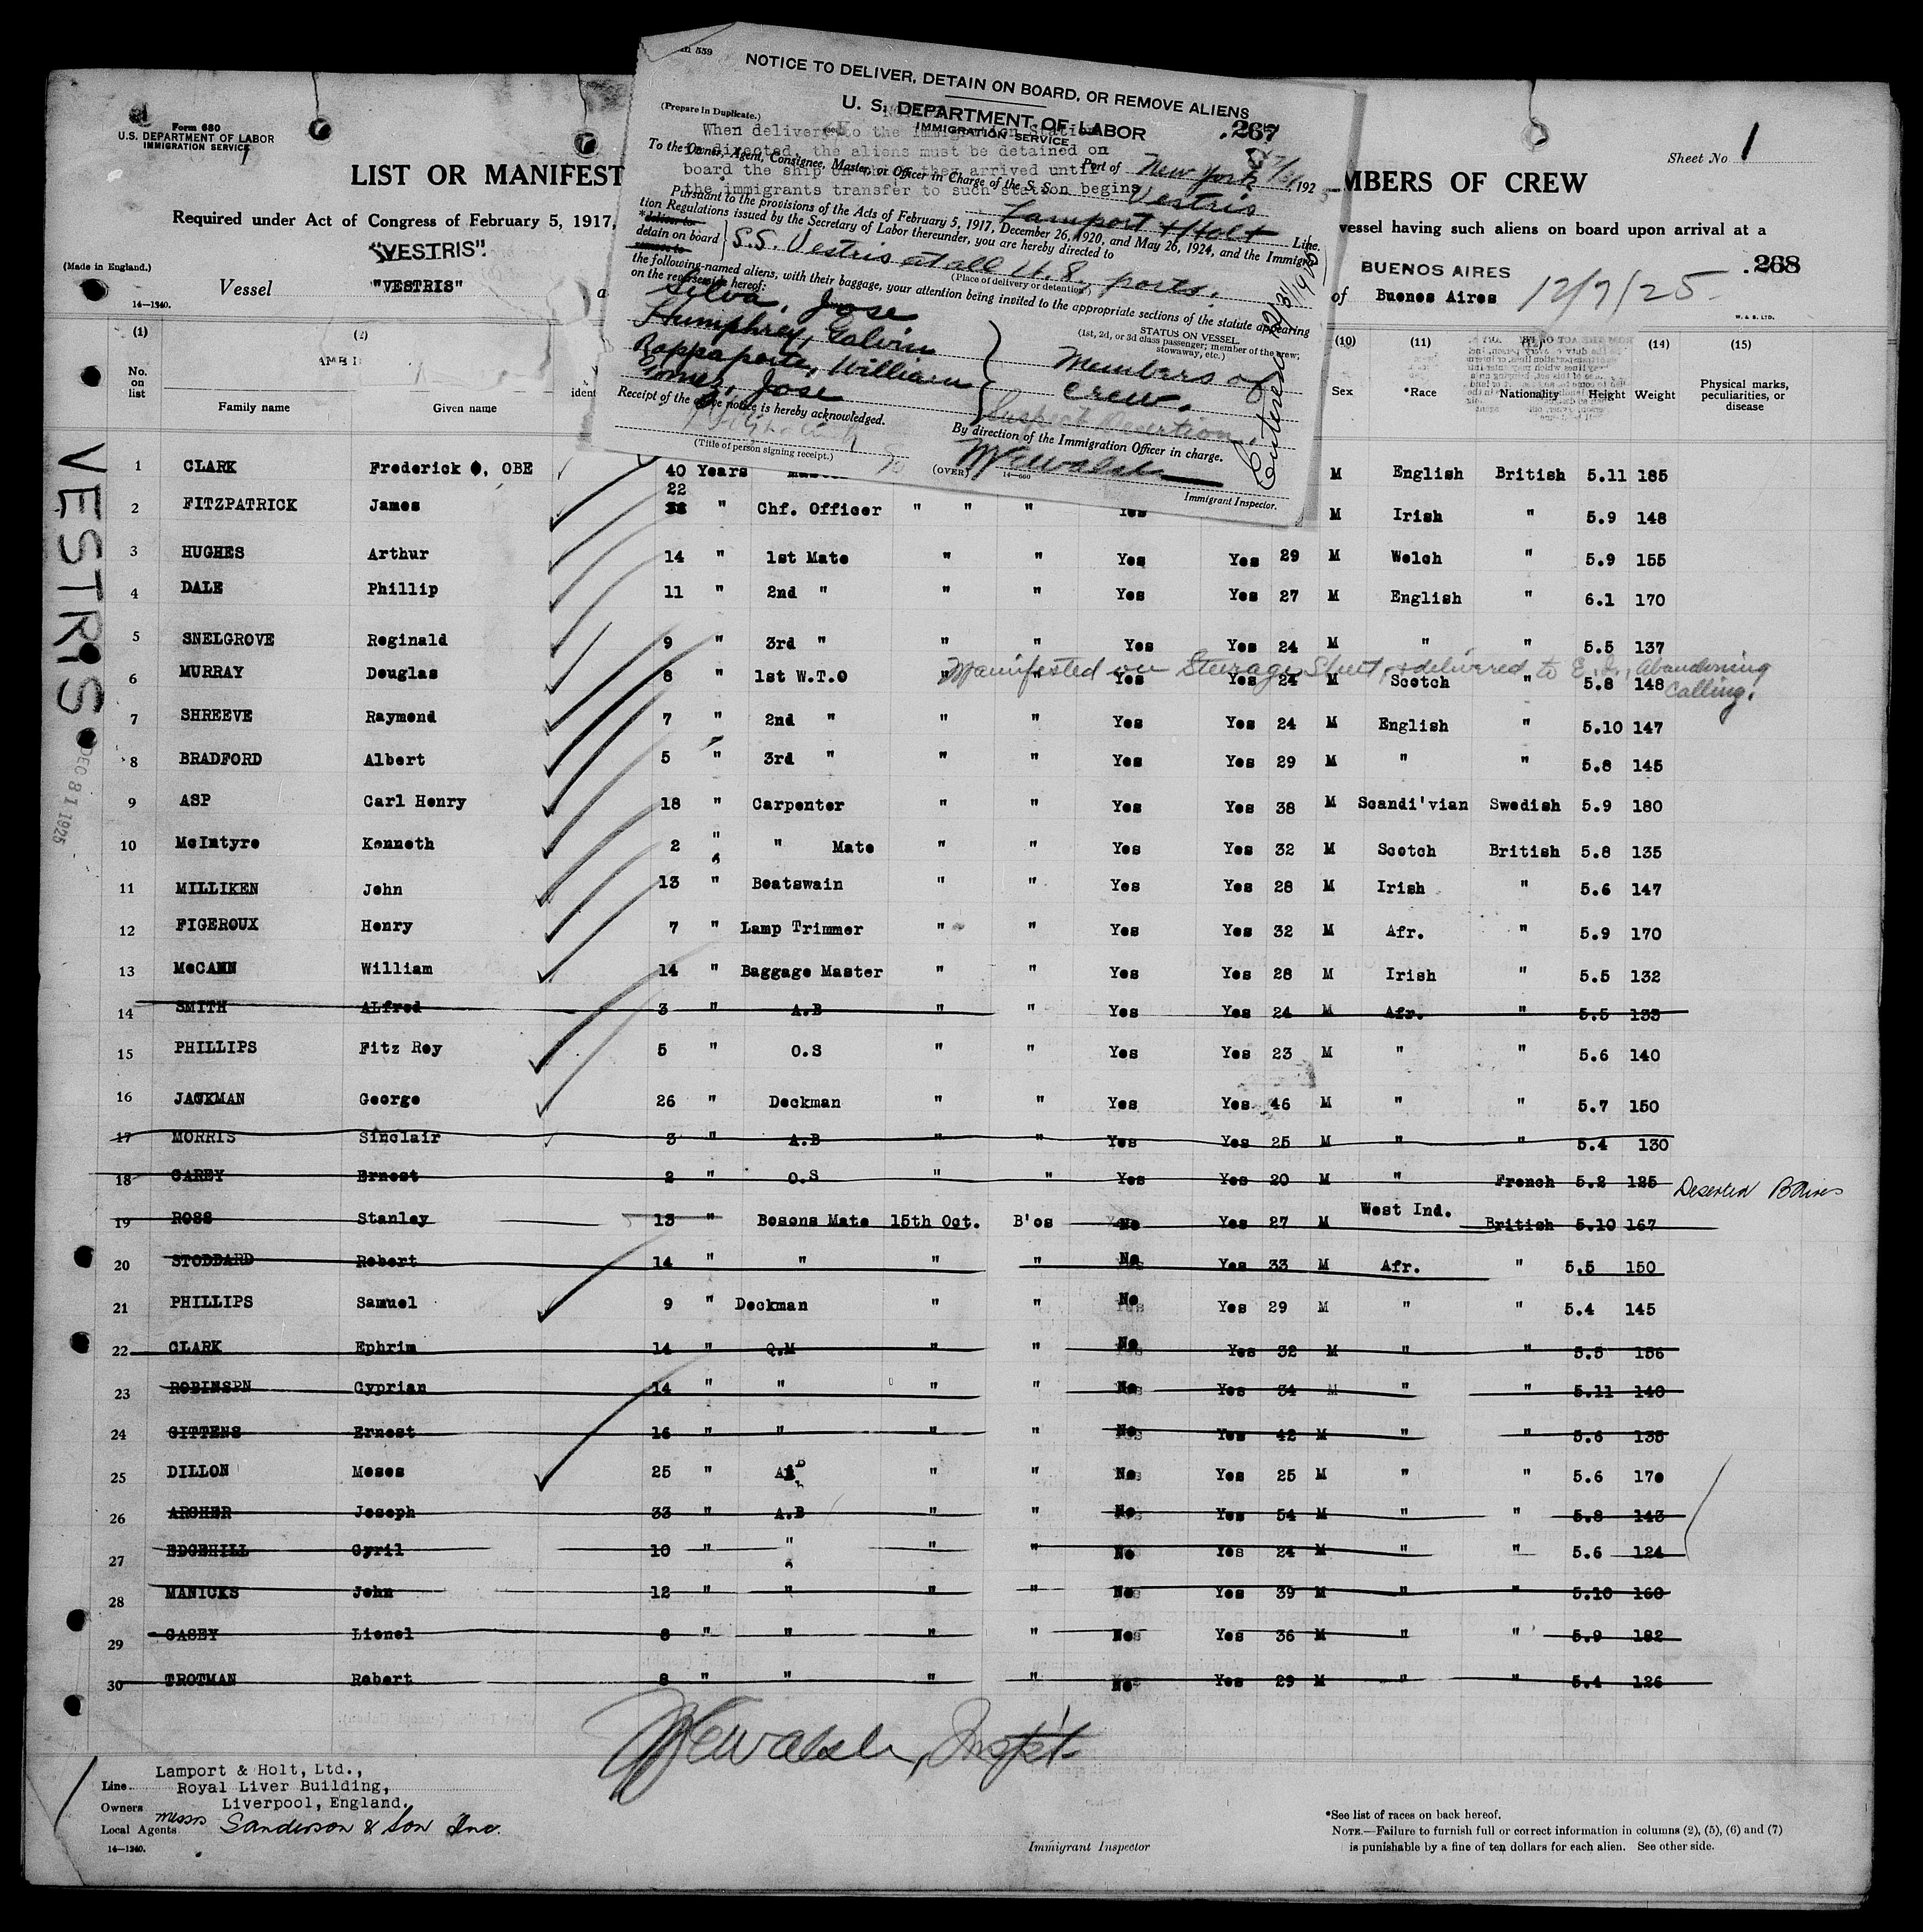 Form 680
U.S. DEPARTMENT OF LABOR
IMMIGRATION SERVICE
LIST OR MANIFEST
MBERS OF CREW
Sheet No 1
Required under Act of Congress of February 5, 1917,
vessel having such aliens on board upon arrival at a
(Made in England.)
"VESTRIS".
Vessel "VESTRIS"
14—1240.
BUENOS AIRES
of Buenos Aires 12/7/25
.268
W. & S. LTD.
559
NOTICE TO DELIVER, DETAIN ON BOARD, OR REMOVE ALIENS
(Prepare in Duplicate.)
U. S. DEPARTMENT OF LABOR
IMMIGRATION SERVICE
.267
When delivered to the Immigration Station
directed, the aliens must be detained on
board the ship on they arrived until
the immigrants transfer to such station begins
Port of New York, 192
To the Owner, Agent, Consignee, Master, or Officer in Charge of the S. S. Vestris
Lamport & Holt Line.
Pursuant to the provisions of the Acts of February 5, 1917, December 26, 1920, and May 26, 1924, and the Immigra-
tion Regulations issued by the Secretary of Labor thereunder, you are hereby directed to
*deliver to
detain on board
remove to
S.S. Vestris at all U.S. ports.
(Place of delivery or detention)
the following-named aliens, with their baggage, your attention being invited to the appropriate sections of the statute appearing
on the reverse hereof:
STATUS ON VESSEL
(1st, 2d, or 3d class passenger; member of the crew;
stowaway, etc.)
Silva, Jose
Humphrey, Galvin
Rappaporte, William
Gomez, Jose
Members of
crew.
Suspect Desertion.
Receipt of the above notice is hereby acknowledged.
(Title of person signing receipt.)
By direction of the Immigration Officer in charge.
(OVER)
14—660
Immigrant Inspector.
(1) (2) (10) (11) (12) Height (14) (15)
No. on list Family name Given name Sex *Race Nationality Weight Physical marks, peculiarities, or disease
VESTRIS
DEC 31 1925
1 CLARK Frederick , OBE 40 Years M English British 5.11 185
22
2 FITZPATRICK James " Chf. Officer " " " Yes M Irish " 5.9 148
3 HUGHES Arthur 14 " 1st Mate " " Yes Yes 29 M Welch " 5.9 155
4 DALE Phillip 11 " 2nd " " " Yes Yes 27 M English " 6.1 170
5 SNELGROVE Reginald 9 " 3rd " " " Yes Yes 24 M " " 5.5 137
Manifested on Steerage Sheet, & delivered to E.I., Abandoning
calling.
6 MURRAY Douglas 8 " 1st W.T.O " " Yes Yes 24 M Scotch " 5.8 148
7 SHREEVE Raymond 7 " 2nd " " " Yes Yes 24 M English " 5.10 147
8 BRADFORD Albert 5 " 3rd " " " Yes Yes 29 M " " 5.8 145
9 ASP Carl Henry 18 " Carpenter " " Yes Yes 38 M Scandi'vian Swedish 5.9 180
10 McIntyre Kenneth 2 " " Mate " " Yes Yes 32 M Scotch British 5.8 135
11 MILLIKEN John 13 " Boatswain " " Yes Yes 28 M Irish " 5.6 147
12 FIGEROUX Henry 7 " Lamp Trimmer " " Yes Yes 32 M Afr. " 5.9 170
13 McCANN William 14 " Baggage Master " " Yes Yes 28 M Irish " 5.5 132
14 SMITH ALfred 3 " A.B " " Yes Yes 24 M Afr. " 5.5 133
15 PHILLIPS Fitz Roy 5 " O.S " " Yes Yes 23 M " " 5.6 140
16 JACKMAN George 26 " Deckman " " Yes Yes 46 M " " 5.7 150
17 MORRIS Sinclair 3 " A.B " " Yes Yes 25 M " " 5.4 130
18 CAREY Ernest 2 " O.S " " Yes Yes 20 M " French 5.2 125 Deserted BAires
19 ROSS Stanley 13 " Bosons Mate 15th Oct. B'os No Yes 27 M West Ind. British 5.10 167
20 STODDARD Robert 14 " " " " No Yes 33 M Afr. " 5.5 150
21 PHILLIPS Samuel 9 " Deckman " " No Yes 29 M " " 5.4 145
22 CLARK Ephrim 14 " Q.M " " No Yes 32 M " " 5.5 156
23 ROBINSPN Cyprian 14 " " " " No Yes 34 M " " 5.11 140
24 GITTENS Ernest 16 " " " " No Yes 42 M " " 5.6 135
25 DILLON Moses 25 " " " No Yes 25 M " " 5.6 170
26 ARCHER Joseph 33 " A.B " " No Yes 54 M " " 5.8 143
27 EDGEHILL Cyril 10 " " " " No Yes 24 M " " 5.6 124
28 MANICKS John 12 " " " " No Yes 39 M " " 5.10 160
29 CASEY Lionel 8 " " " " No Yes 36 M " " 5.9 182
30 TROTMAN Robert 8 " " " " No Yes 29 M " " 5.4 126
Lamport & Holt, Ltd.,
Line Royal Liver Building,
Owners Liverpool, England.
Local Agents Messrs Sanderson & Son Inc.
14—1240.
Immigrant Inspector
*See list of races on back hereof.
NOTE.—Failure to furnish full or correct information in columns (2), (5), (6) and (7)
is punishable by a fine of ten dollars for each alien. See other side.